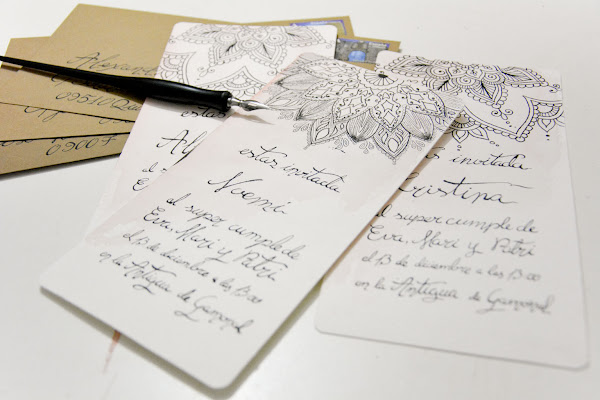 Alexand
09510 Qui
70060
estás
Al
el s
E
estás invitada
Noemi
al super cumple de
Eva, Mari y Patri
el 13 de diciembre a las 13:00
en la Antigua de Gamonal
s invitada
Cristina
al super cumple de
Eva, Mari y Patri
el 13 de diciembre a las 13:00
en la Antigua de Gamonal